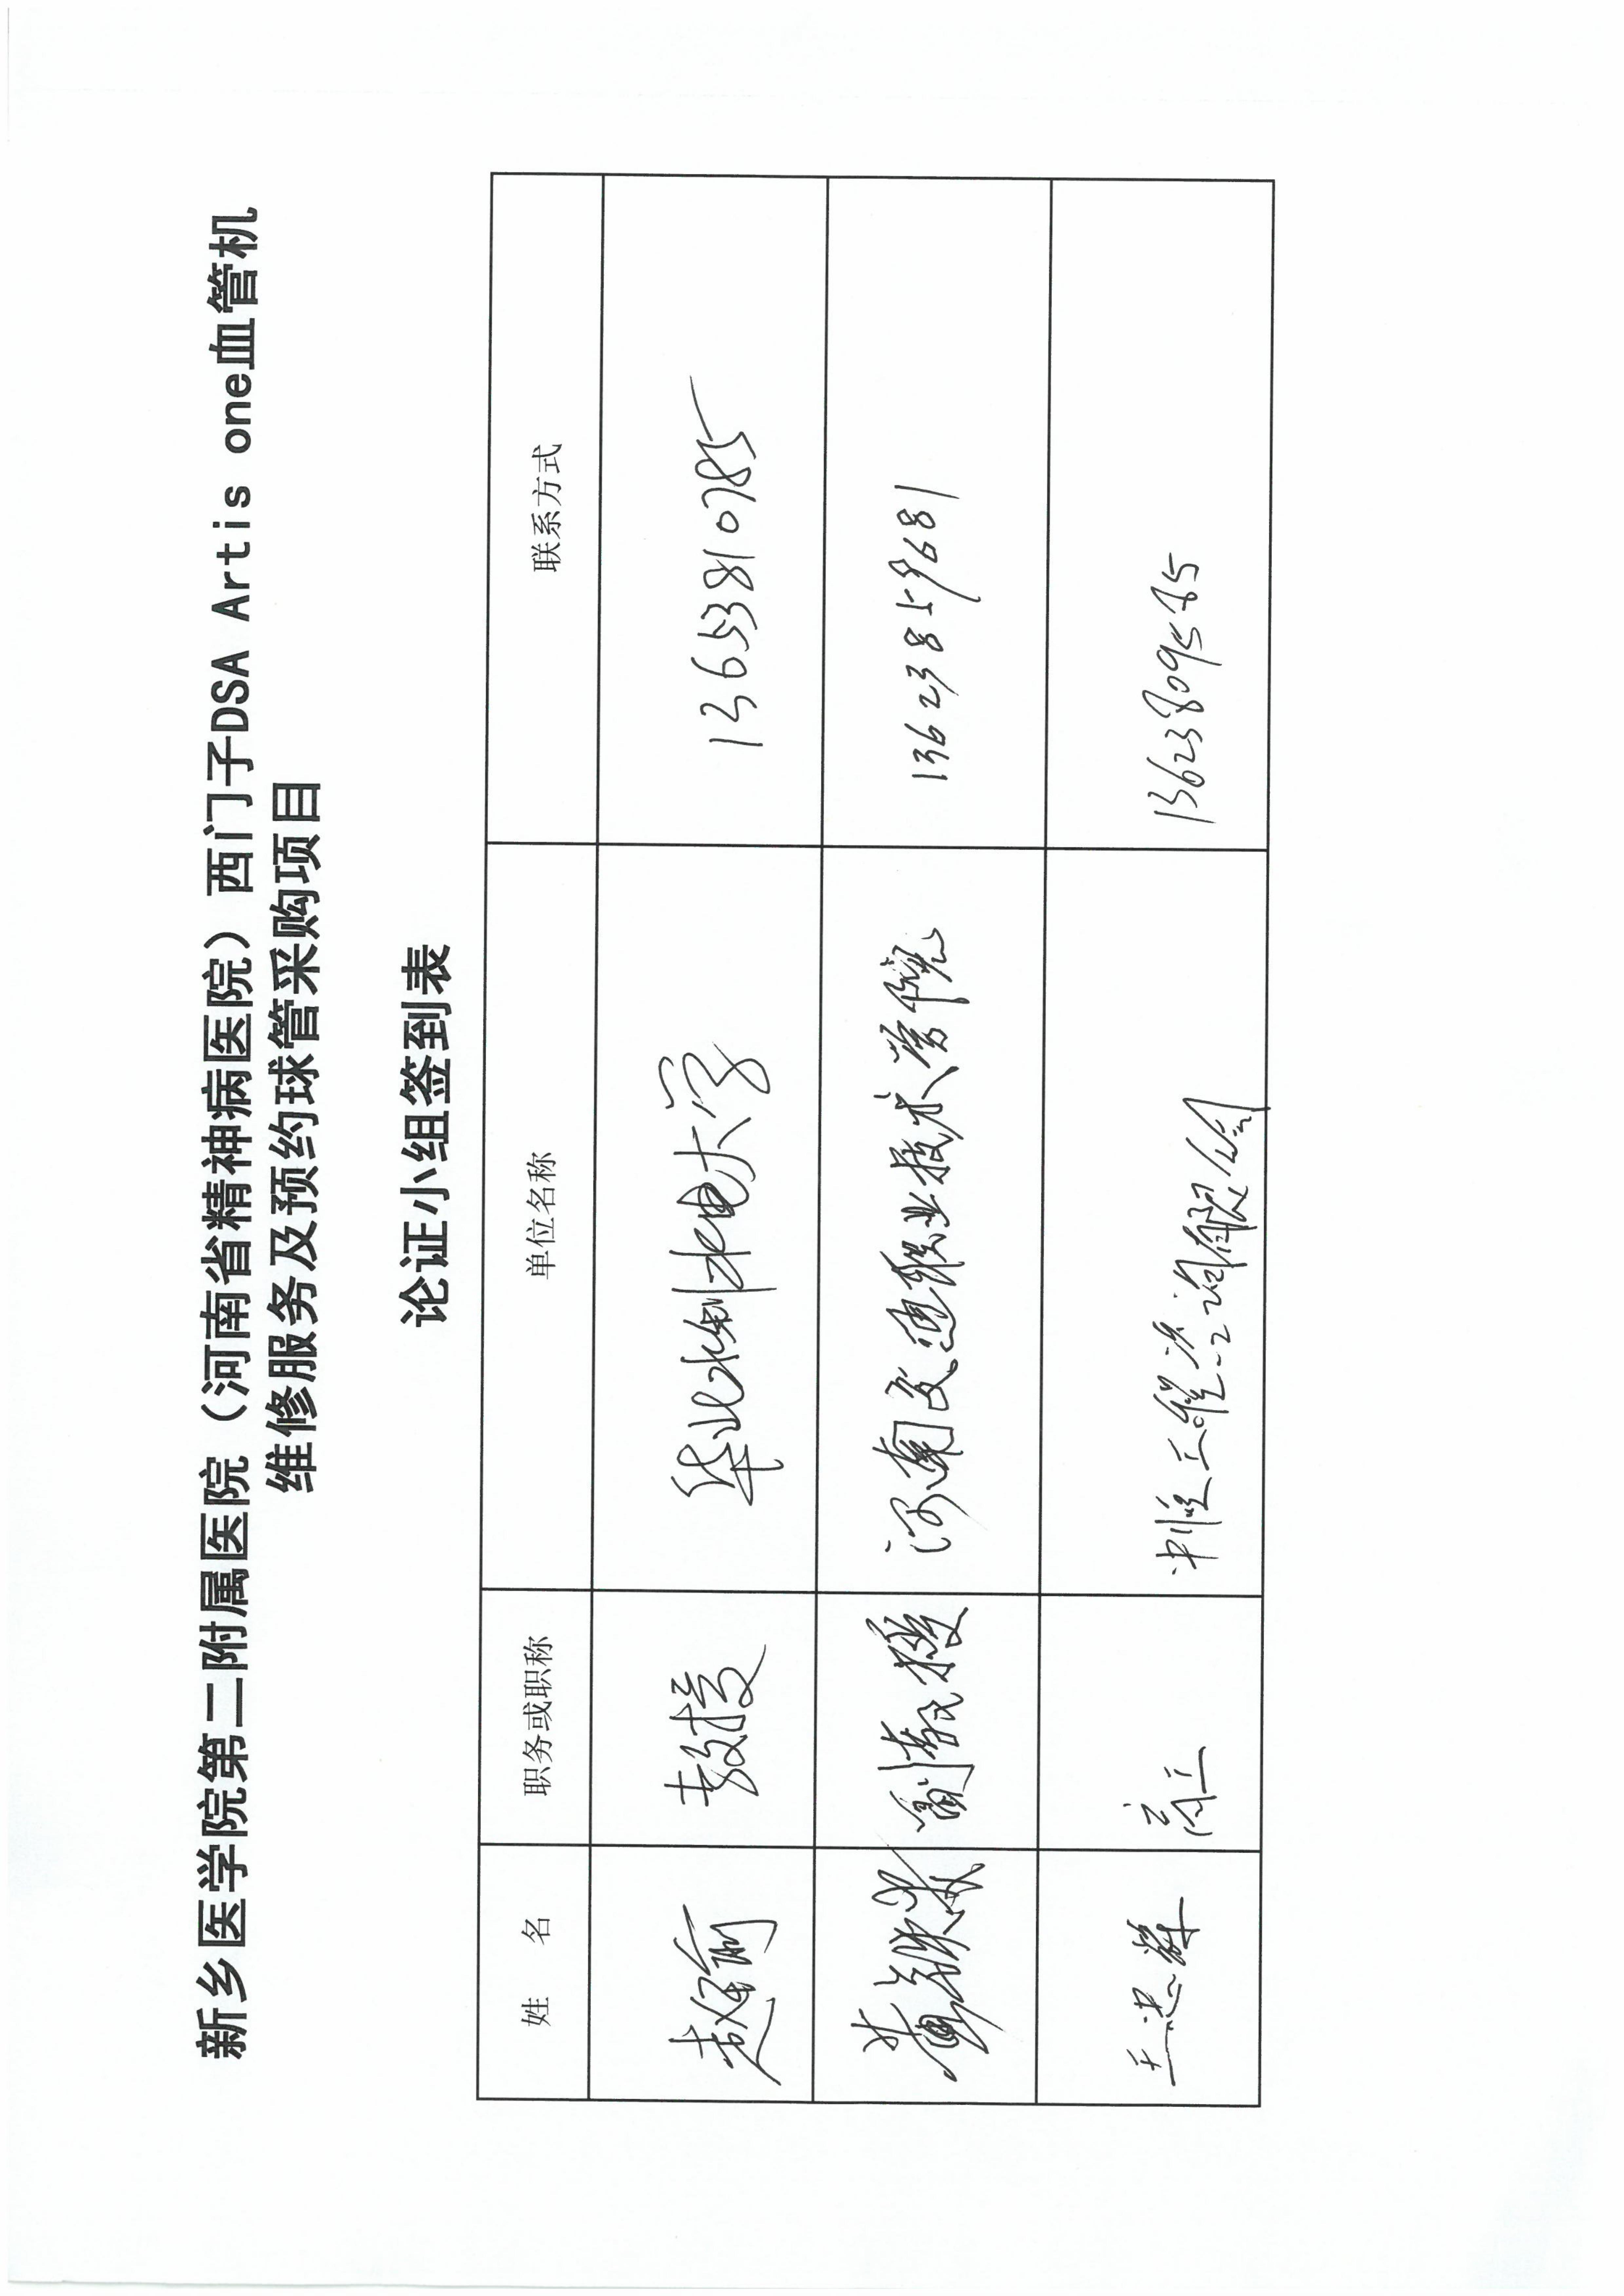 新乡医学院第二附属医院（河南省精神病医院）西门子DSA Artis one血管机
维修服务及预约球管采购项目
论证小组签到表
姓 名 职务或职称 单位名称 联系方式
赵瑜 教授 华北水利水电大学 13653810785
黄继 副教授 河南交通职业技术学院 13623859681
王忠辉 高工 咨询有限公司